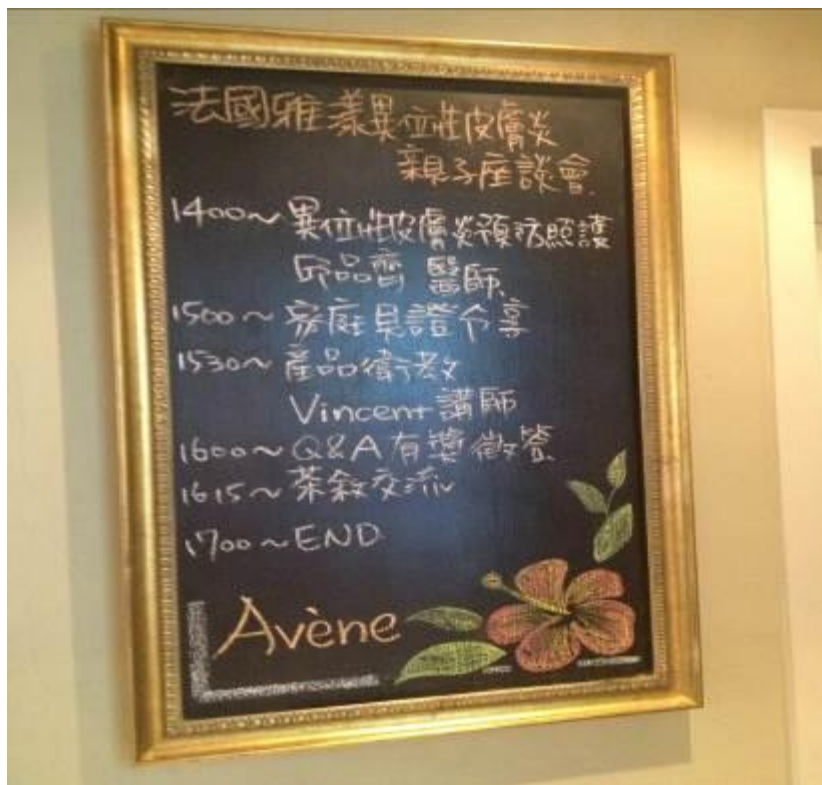 法國雅漾異位性皮膚炎
親子座談會.
1400~異位性皮膚炎預防照護
邱品齊 醫師.
1500~家庭見證分享
1530~產品衛教
Vincent 講師
1600~Q&A有獎徵答
1615~茶敘交流
1700~END
Avène